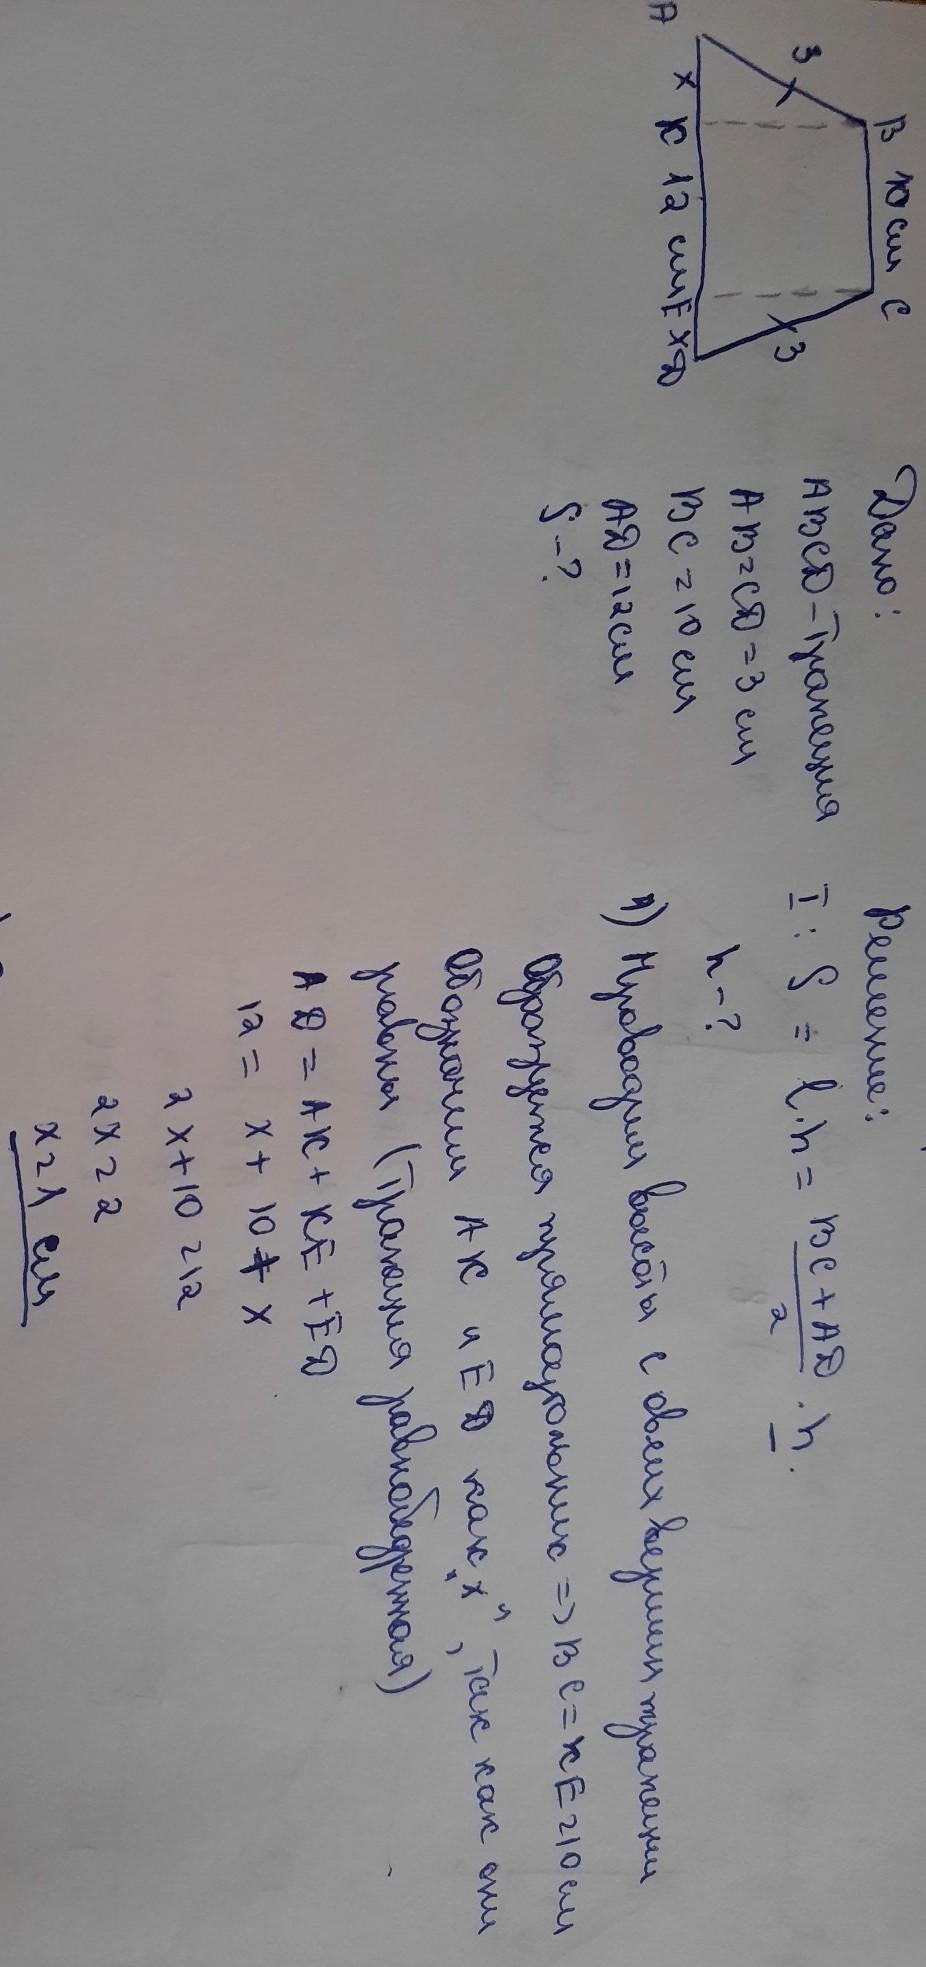 B 10 см C
3 3
A x K 12 см E x D
Дано:
ABCD - трапеция
AB = CD = 3 см
BC = 10 см
AD = 12 см
S - ?
Решение:
I: S = l · h = BC + AD / 2 · h.
h - ?
1) Проводим высоты с обеих вершин трапеции
Образуется прямоугольник => BC = KE = 10 см
Обозначим AK и ED как "x", так как они
равны (трапеция равнобедренная)
AD = AK + KE + ED
12 = x + 10 + x
2x + 10 = 12
2x = 2
x = 1 см